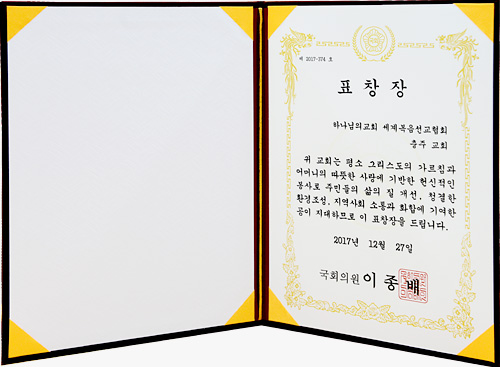 제 2017-374 호
표창장
하나님의교회 세계복음선교협회
충주 교회
위 교회는 평소 그리스도의 가르침과
어머니의 따뜻한 사랑에 기반한 헌신적인
봉사로 주민들의 삶의 질 개선, 청결한
환경조성, 지역사회 소통과 화합에 기여한
공이 지대하므로 이 표창장을 드립니다.
2017년 12월 27일
국회의원 이종배